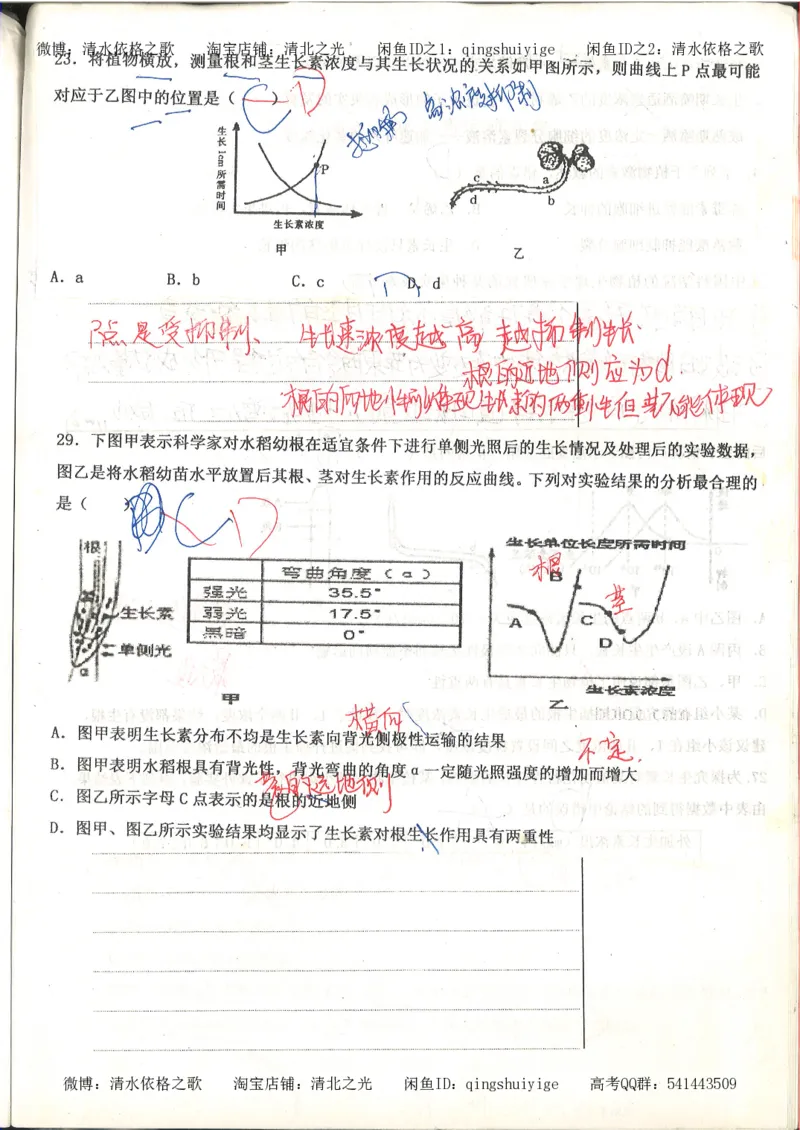 微博：清水依格之歌 淘宝店铺：清北之光 闲鱼ID之1：qingshuiyige 闲鱼ID之2：清水依格之歌
23．将植物横放，测量根和茎生长素浓度与其生长状况的关系如甲图所示，则曲线上P点最可能
对应于乙图中的位置是（ C D ）
高浓度抑制
生长1cm所需时间
P
生长素浓度
甲
c a
d b
乙
A．a B．b C．c D．d
P点是受抑制、生长素浓度越高 越抑制生长
根的近地侧应为d
29．下图甲表示科学家对水稻幼根在适宜条件下进行单侧光照后的生长情况及处理后的实验数据，
图乙是将水稻幼苗水平放置后其根、茎对生长素作用的反应曲线。下列对实验结果的分析最合理的
是（ ） C D
根
生长素
单侧光
α
甲
弯曲角度（α）
强光 35.5°
弱光 17.5°
黑暗 0°
生长单位长度所需时间
根 茎
A B C D
生长素浓度
乙
横向
A．图甲表明生长素分布不均是生长素向背光侧极性运输的结果
不定.
B．图甲表明水稻根具有背光性，背光弯曲的角度α一定随光照强度的增加而增大
茎的远地侧
C．图乙所示字母C点表示的是根的近地侧
D．图甲、图乙所示实验结果均显示了生长素对根生长作用具有两重性
微博：清水依格之歌 淘宝店铺：清北之光 闲鱼ID：qingshuiyige 高考QQ群：541443509